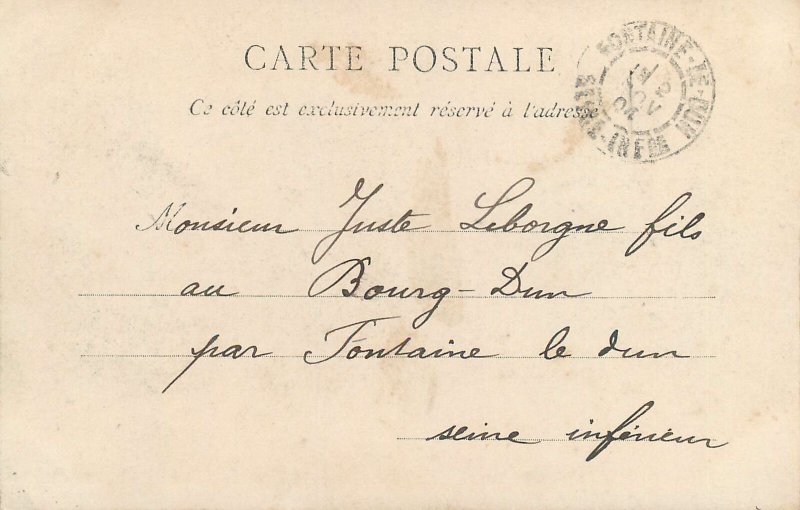 CARTE POSTALE
FONTAINE-LE-DUN
SEINE-INFRE
Ce côté est exclusivement réservé à l'adresse
Monsieur Juste Leborgne fils
au Bourg-Dun
par Fontaine le dun
seine inférieur